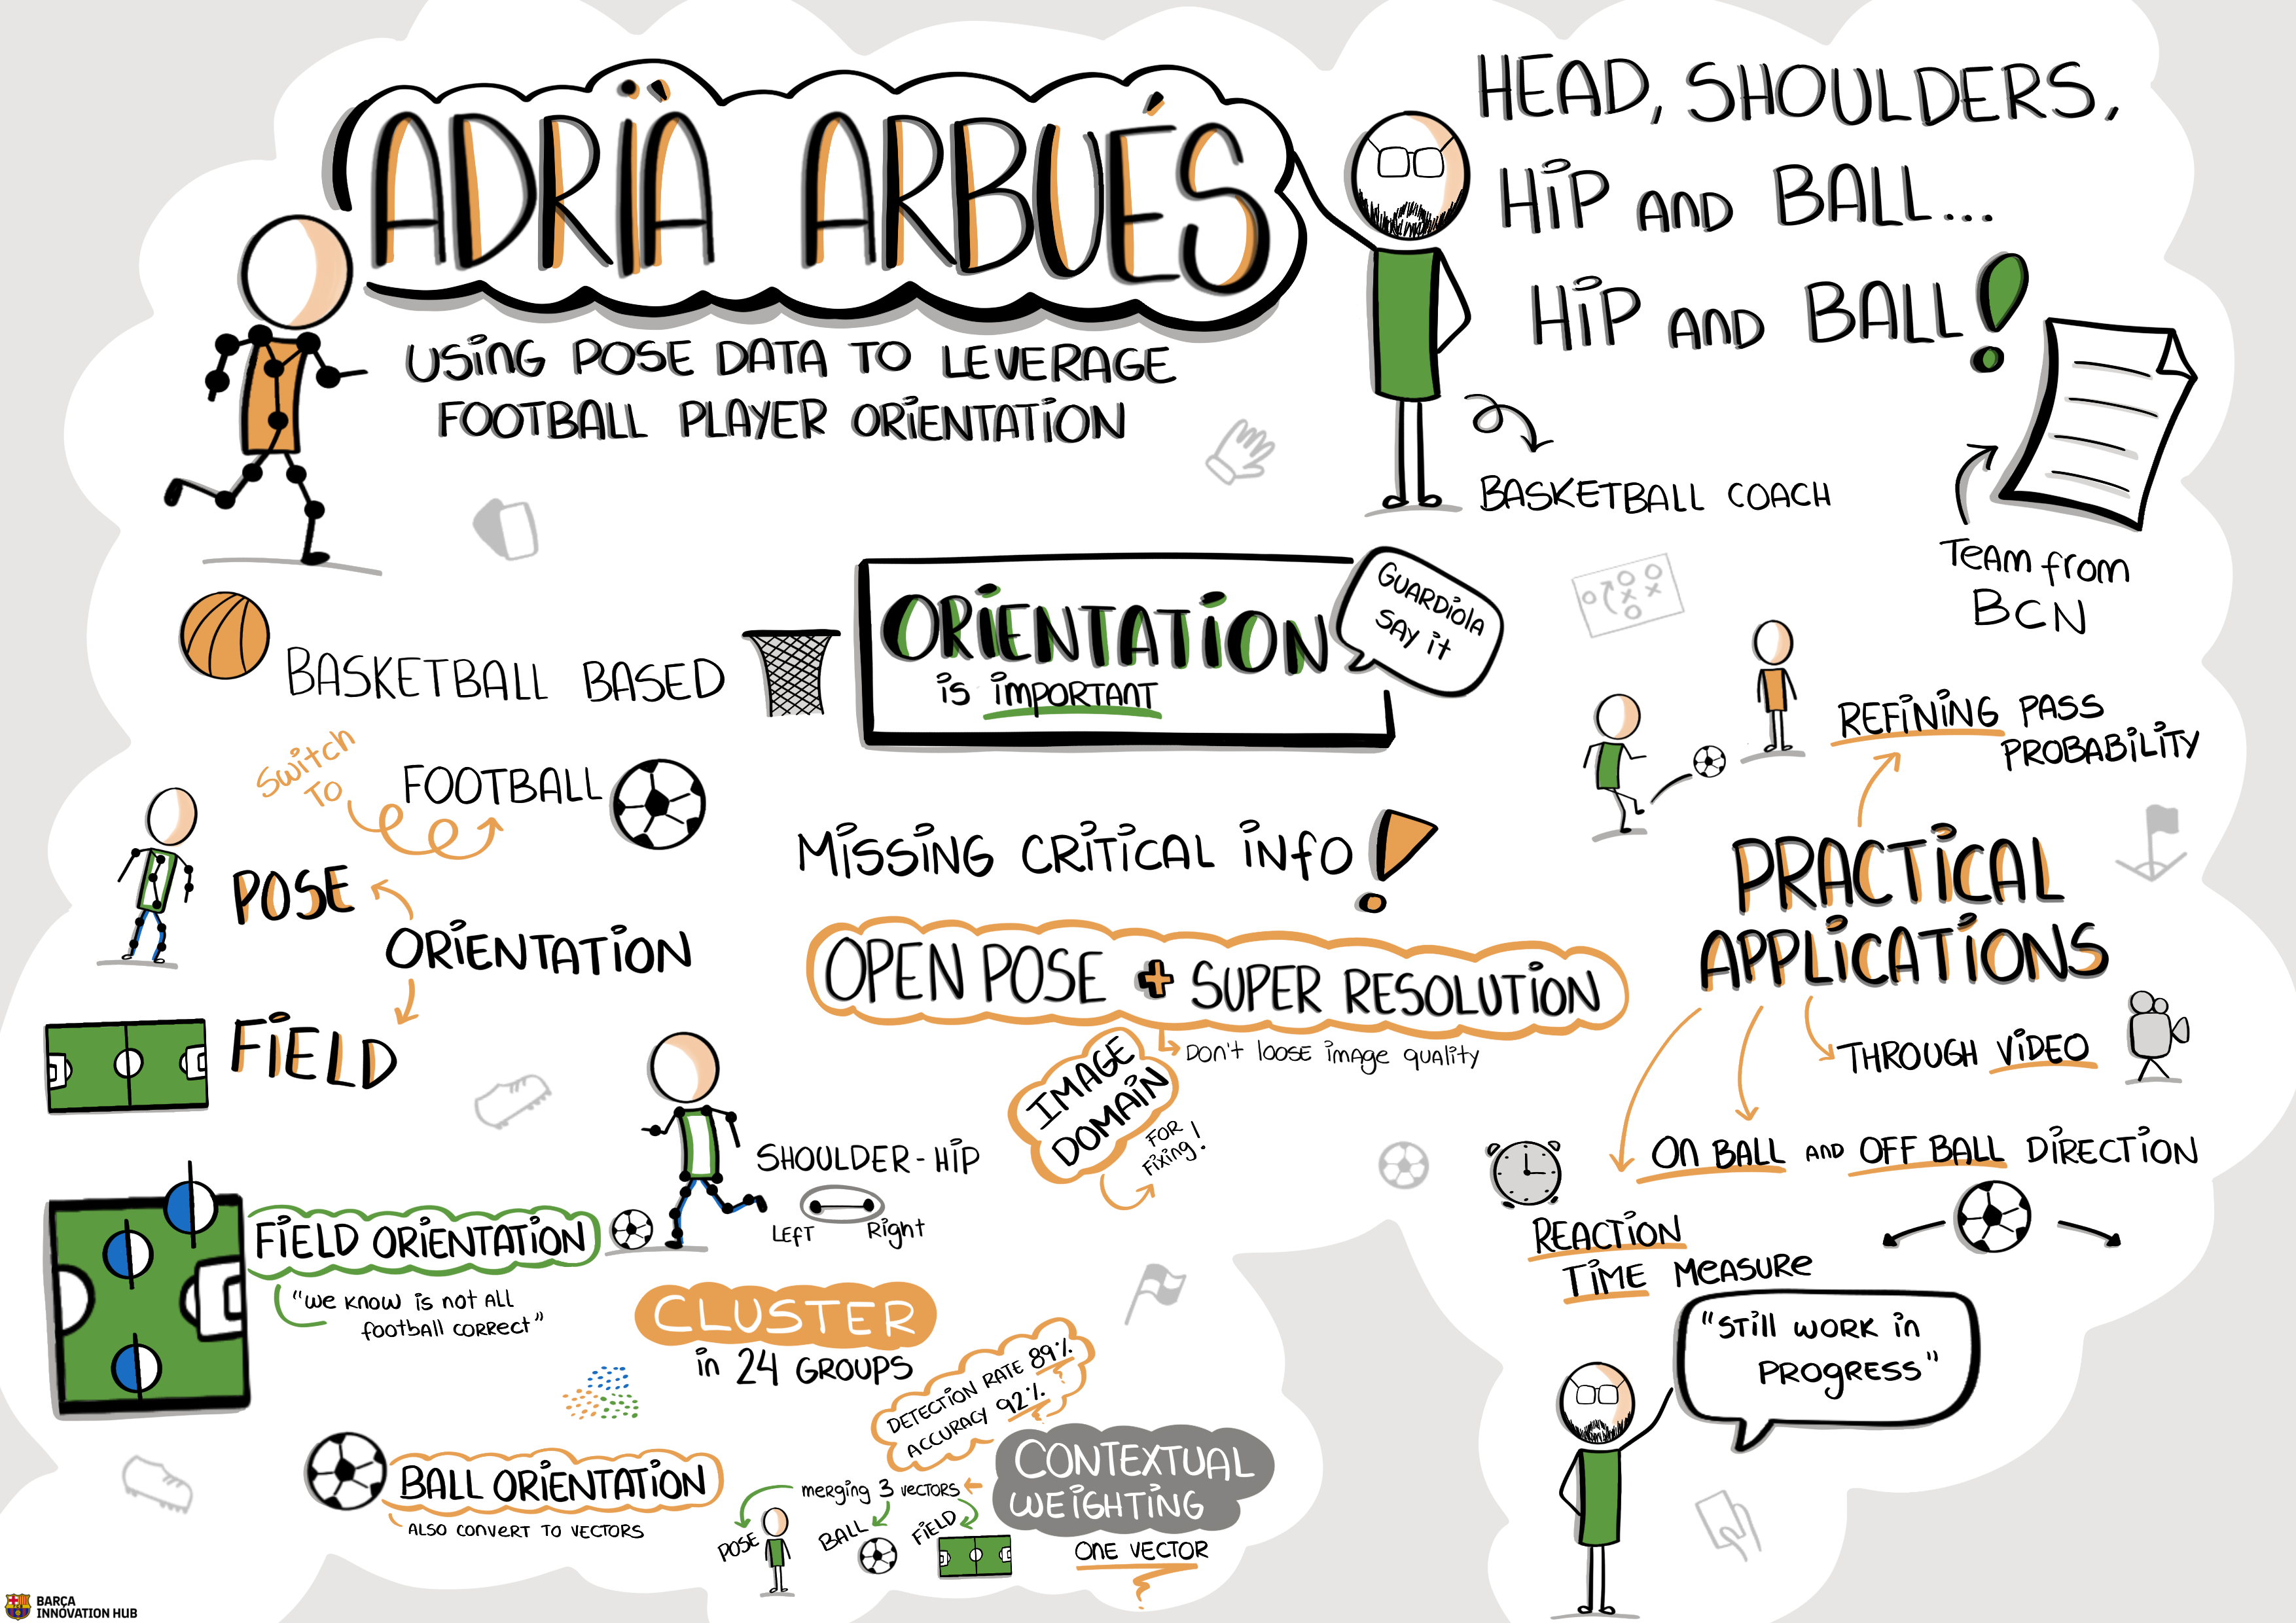 ADRIÀ ARBUÉS
USING POSE DATA TO LEVERAGE
FOOTBALL PLAYER ORIENTATION
HEAD, SHOULDERS,
HIP AND BALL...
HIP AND BALL!
BASKETBALL COACH
TEAM from
BCN
BASKETBALL BASED
ORIENTATION
is IMPORTANT
GUARDIOLA
SAY it
Switch
TO
FOOTBALL
POSE
ORIENTATION
FIELD
MISSING CRITICAL INFO!
OPEN POSE + SUPER RESOLUTION
DON'T LOOSE IMAGE QUALITY
IMAGE
DOMAIN
FOR
Fixing!
REFINING PASS
PROBABILITY
PRACTICAL
APPLICATIONS
THROUGH VIDEO
ON BALL AND OFF BALL DIRECTION
REACTION
TIME MEASURE
"STILL WORK IN
PROGRESS"
SHOULDER-HIP
LEFT Right
FIELD ORIENTATION
"WE KNOW IS NOT ALL
FOOTBALL CORRECT"
CLUSTER
in 24 GROUPS
DETECTION RATE 89%
ACCURACY 92%
BALL ORIENTATION
ALSO CONVERT TO VECTORS
CONTEXTUAL
WEIGHTING
merging 3 VECTORS
POSE BALL FIELD
ONE VECTOR
BARÇA
INNOVATION HUB